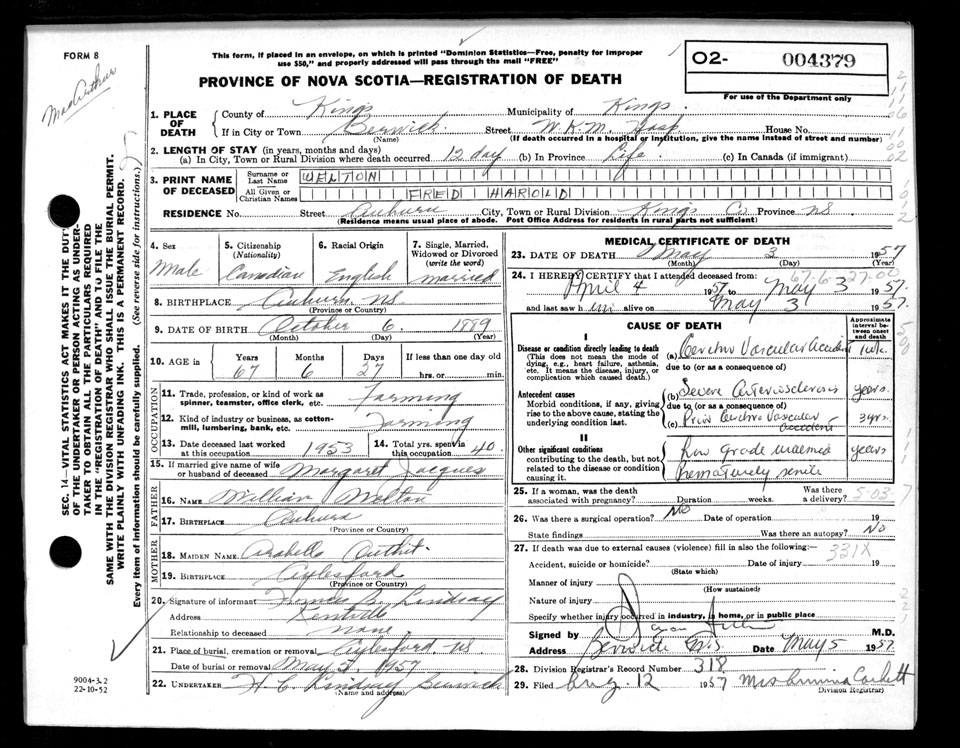 FORM 8
MacArthur
This form, if placed in an envelope, on which is printed "Dominion Statistics—Free, penalty for improper
use $50," and properly addressed will pass through the mail "FREE"
PROVINCE OF NOVA SCOTIA—REGISTRATION OF DEATH
02- 004379
For use of the Department only
1. PLACE OF DEATH
County of Kings Municipality of Kings
If in City or Town Berwick Street W.K.M. Hosp House No.
(Name) (If death occurred in a hospital or institution, give the name instead of street and number)
2. LENGTH OF STAY (in years, months and days)
(a) In City, Town or Rural Division where death occurred 12 day (b) In Province Life (c) In Canada (if immigrant)
3. PRINT NAME OF DECEASED
Surname or Last Name WELTON
All Given or Christian Names FRED HAROLD
RESIDENCE No. Street Auburn City, Town or Rural Division Kings Co Province NS
(Residence means usual place of abode. Post Office Address for residents in rural parts not sufficient)
4. Sex Male
5. Citizenship (Nationality) Canadian
6. Racial Origin English
7. Single, Married, Widowed or Divorced (write the word) married
8. BIRTHPLACE Auburn NS
(Province or Country)
9. DATE OF BIRTH October 6 1889
(Month) (Day) (Year)
10. AGE in Years 67 Months 6 Days 27 If less than one day old hrs. or min.
OCCUPATION
11. Trade, profession, or kind of work as spinner, teamster, office clerk, etc. Farming
12. Kind of industry or business, as cotton-mill, lumbering, bank, etc. Farming
13. Date deceased last worked at this occupation 1953 14. Total yrs. spent in this occupation 40
15. If married give name of wife or husband of deceased Margaret Jacques
FATHER
16. NAME William Welton
17. BIRTHPLACE Auburn
(Province or Country)
MOTHER
18. MAIDEN NAME Arabella
19. BIRTHPLACE Aylesford
(Province or Country)
20. Signature of informant Lindsay
Address Kentville
Relationship to deceased none
21. Place of burial, cremation or removal Aylesford NS
Date of burial or removal May 5 1957
22. UNDERTAKER H C Lindsay Berwick
(Name and address)
MEDICAL CERTIFICATE OF DEATH
23. DATE OF DEATH May 3 1957
(Month) (Day) (Year)
67-6-27-00
24. I HEREBY CERTIFY that I attended deceased from:
April 4 1957 to May 3 1957
and last saw h im alive on May 3 1957.
CAUSE OF DEATH
Approximate interval between onset and death
I
Disease or condition directly leading to death (a) Cerebro Vascular Accident 1 wk.
(This does not mean the mode of dying, e.g., heart failure, asthenia, etc. It means the disease, injury, or complication which caused death.)
due to (or as a consequence of)
Antecedent causes (b) Severe Arteriosclerosis years
Morbid conditions, if any, giving rise to the above cause, stating the underlying condition last.
due to (or as a consequence of)
(c) Prior Cerebro Vascular accident 3 yrs.
II
Other significant conditions
contributing to the death, but not related to the disease or condition causing it.
Low grade years
Prematurely senile
25. If a woman, was the death associated with pregnancy? Duration weeks. Was there a delivery? 5-03
26. Was there a surgical operation? No Date of operation 19
State findings Was there an autopsy? No
27. If death was due to external causes (violence) fill in also the following:— 331X
Accident, suicide or homicide? Date of injury 19
(State which)
Manner of injury
(How sustained)
Nature of injury
Specify whether injury occurred in industry, in home, or in public place
Signed by M.D.
Address Berwick N.S. Date May 5 1957.
28. Division Registrar's Record Number 318
29. Filed Aug. 12 1957 Mrs
Division Registrar)
SEC. 14—VITAL STATISTICS ACT MAKES IT THE DUTY
OF THE UNDERTAKER OR PERSON ACTING AS UNDER-
TAKER TO OBTAIN ALL THE PARTICULARS REQUIRED
IN THE "REGISTRATION OF DEATH" AND TO FILE THE
SAME WITH THE DIVISION REGISTRAR WHO SHALL ISSUE THE BURIAL PERMIT.
WRITE PLAINLY WITH UNFADING INK. THIS IS A PERMANENT RECORD.
Every item of information should be carefully supplied. (See reverse side for instructions.)
9004-3.2
22-10-52